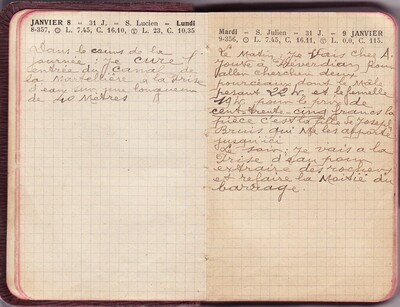 JANVIER 8 – 31 J. – S. Lucien – Lundi
8-357, L. 7.45, C. 16.10, L. 23, C. 10,35
Dans le cours de la
journée; Je cure l'
entrée du Canal de
la à la Prise
d'eau sur une longueur
de 40 Mètres
Mardi – S. Julien – 31 J. – 9 JANVIER
9-356, L. 7.45, C. 16.11, L. 0.0, C. 115.
Le Matin, Je Vais chez A.
pour
aller chercher deux
pourceaux dont le Mâle
pesant 22 K, et la femelle
19 K pour le prix de
cent trente-cinq francs la
pièce c'est la fille de Joseph
Brunis qui Me les apporte
jusqu'ici
Le soir; Je vais a la
Prise d'eau pour
extraire des rochers
et refaire la Moitié du
barrage.